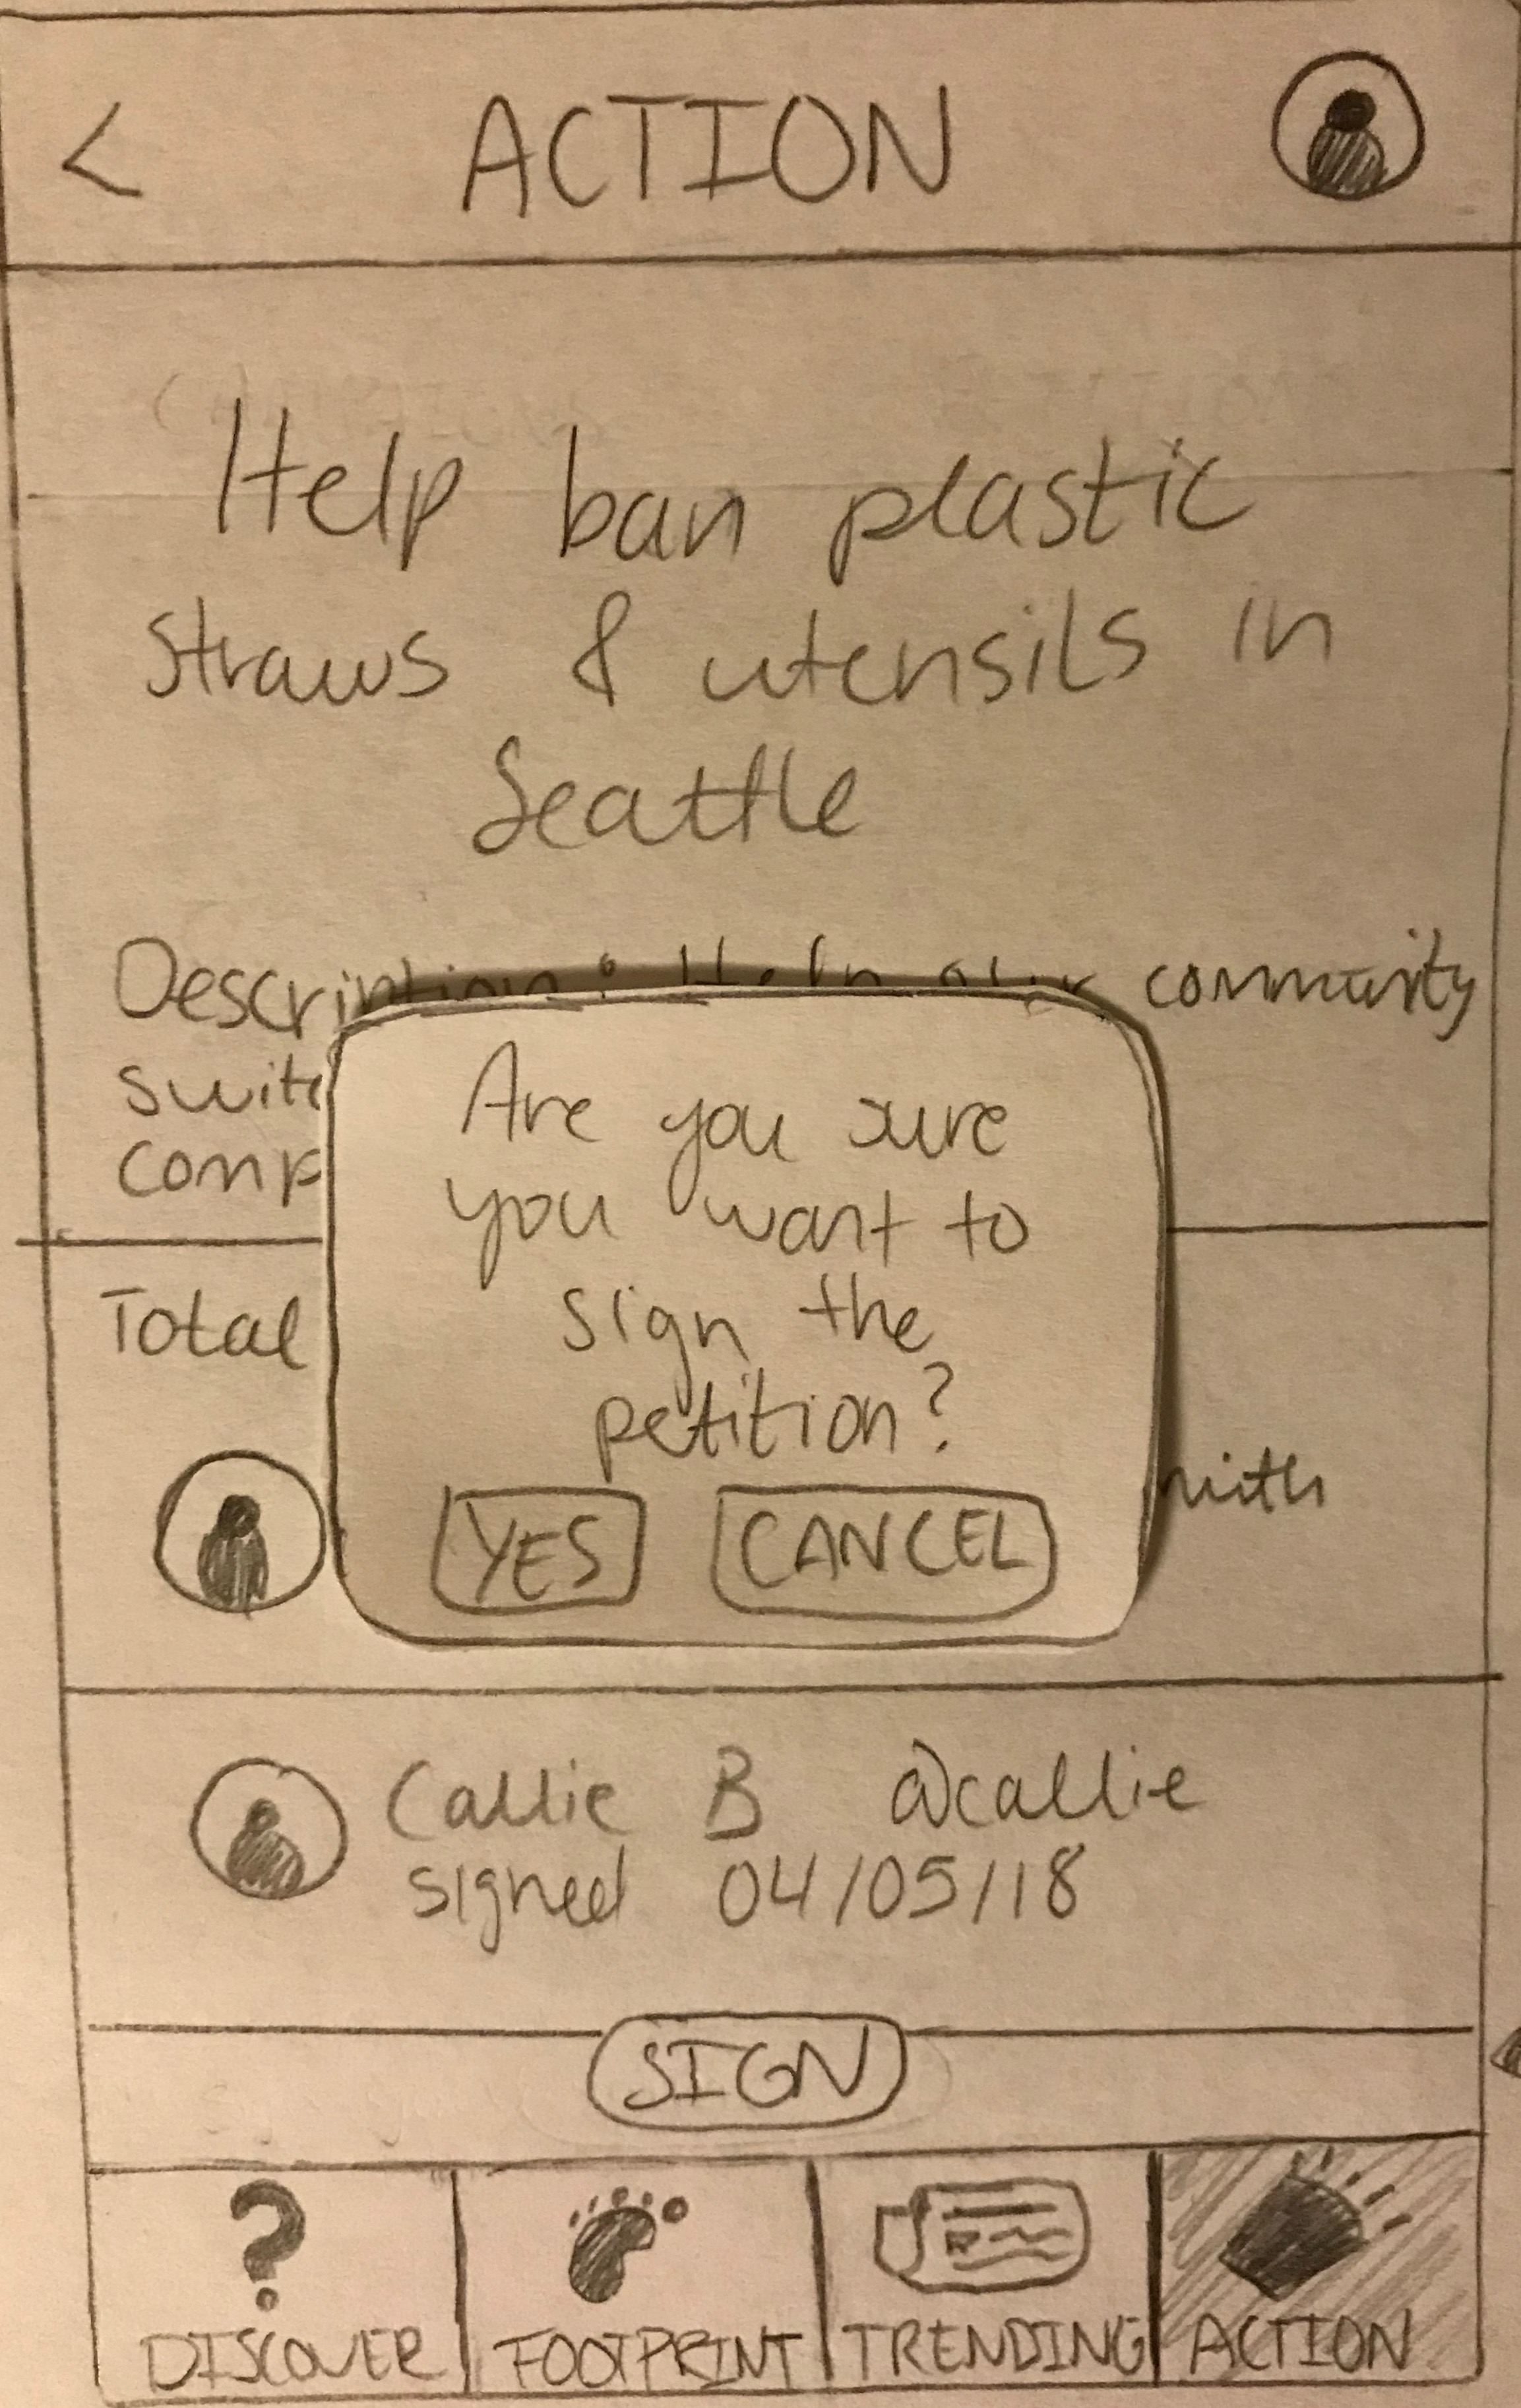 < ACTION
Help ban plastic
straws & utensils in
Seattle
Description: Help our community
Are you sure
you want to
sign the
petition?
YES CANCEL
Total
Callie B @callie
signed 04/05/18
SIGN
DISCOVER FOOTPRINT TRENDING ACTION